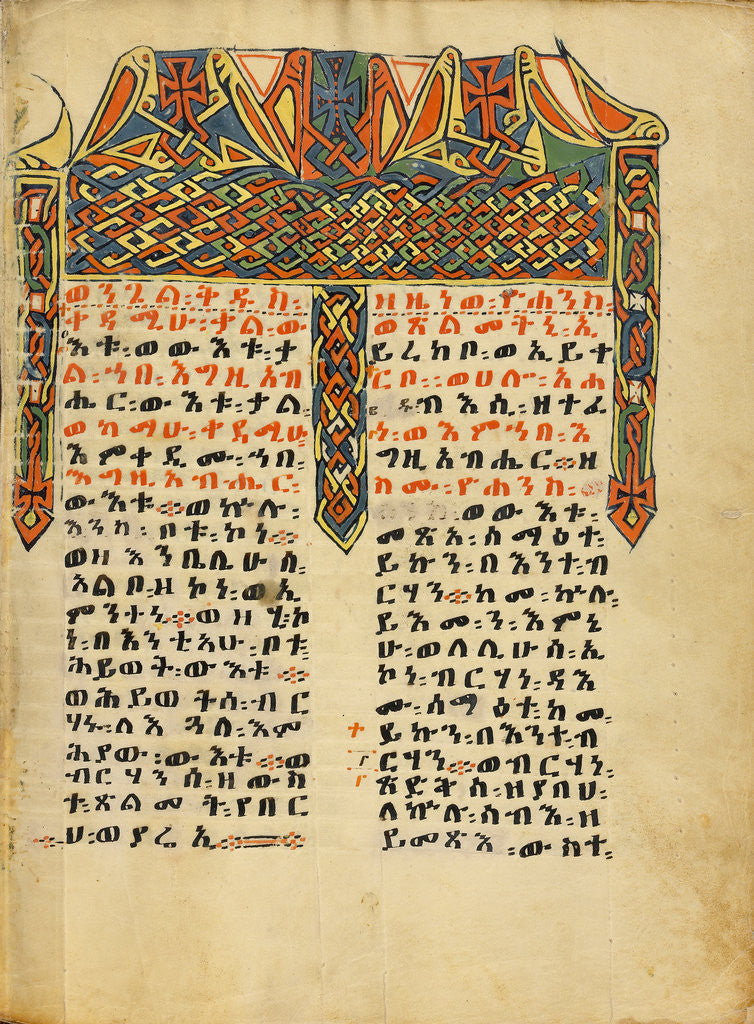 ወንጌል፡ቅዱስ፡
ቀዳሚሁ፡ቃል፡ው
እቱ፡ወውእቱ፡ቃ
ል፡ኀበ፡እግዚአብ
ሔር፡ውእቱ፡ቃል፡
ወከማሁ፡ቀዳሚሁ
እምቀዲሙ፡ኀበ፡
እግዚአብሔር፡
ውእቱ፨ወኵሉ፡
እንከ፡ቦቱ፡ኮነ፨
ወዘእንበሌሁሰ፡
አልቦ፡ዘኮነ፡ወኢ
ምንተኒ፨ወዘሂ፡ኮ
ነ፡በእንቲአሁ፡ቦቱ፡
ሕይወት፡ውእቱ፨
ወሕይወትሰ፡ብር
ሃኑ፡ለእጓለ፡እመ
ሕያው፡ውእቱ፨ወ
ብርሃንሰ፡ዘውስ
ተ፡ጽልመት፡የበር
ህ፡ወያሬኢ፨
ዘዜነወ፡ዮሐንስ፡
ወጽልመትኒ፡ኢ
ይረክቦ፡ወኢይተ
ርቦ፡፡ወሀሎ፡አሐ
ዱ፡ብእሲ፡ዘተፈ
ነ፡ወእምኀበ፡እ
ግዚአብሔር፨ዘ
ስሙ፡ዮሐንስ፡
ወውእቱ፡
መጽአ፡ሰማዕተ፡
ይኩን፡በእንተ፡ብ
ርሃን፨ከመ፡ኵሉ፡
ይእመን፡እምኒ
ሁ፡ወለሊሁሰ፡ኢ
ኮነ፡ብርሃነ፡ዳእ
ሙ፡ሰማዕተ፡ከመ፡
ይኩን፡በእንተ፡ብ
ርሃን፨ወብርሃነ፡
ጽድቅሰ፡ዘያበህ፡
ለኵሉ፡ሰብእ፡ዘ
ይመጽእ፡ውስተ፡